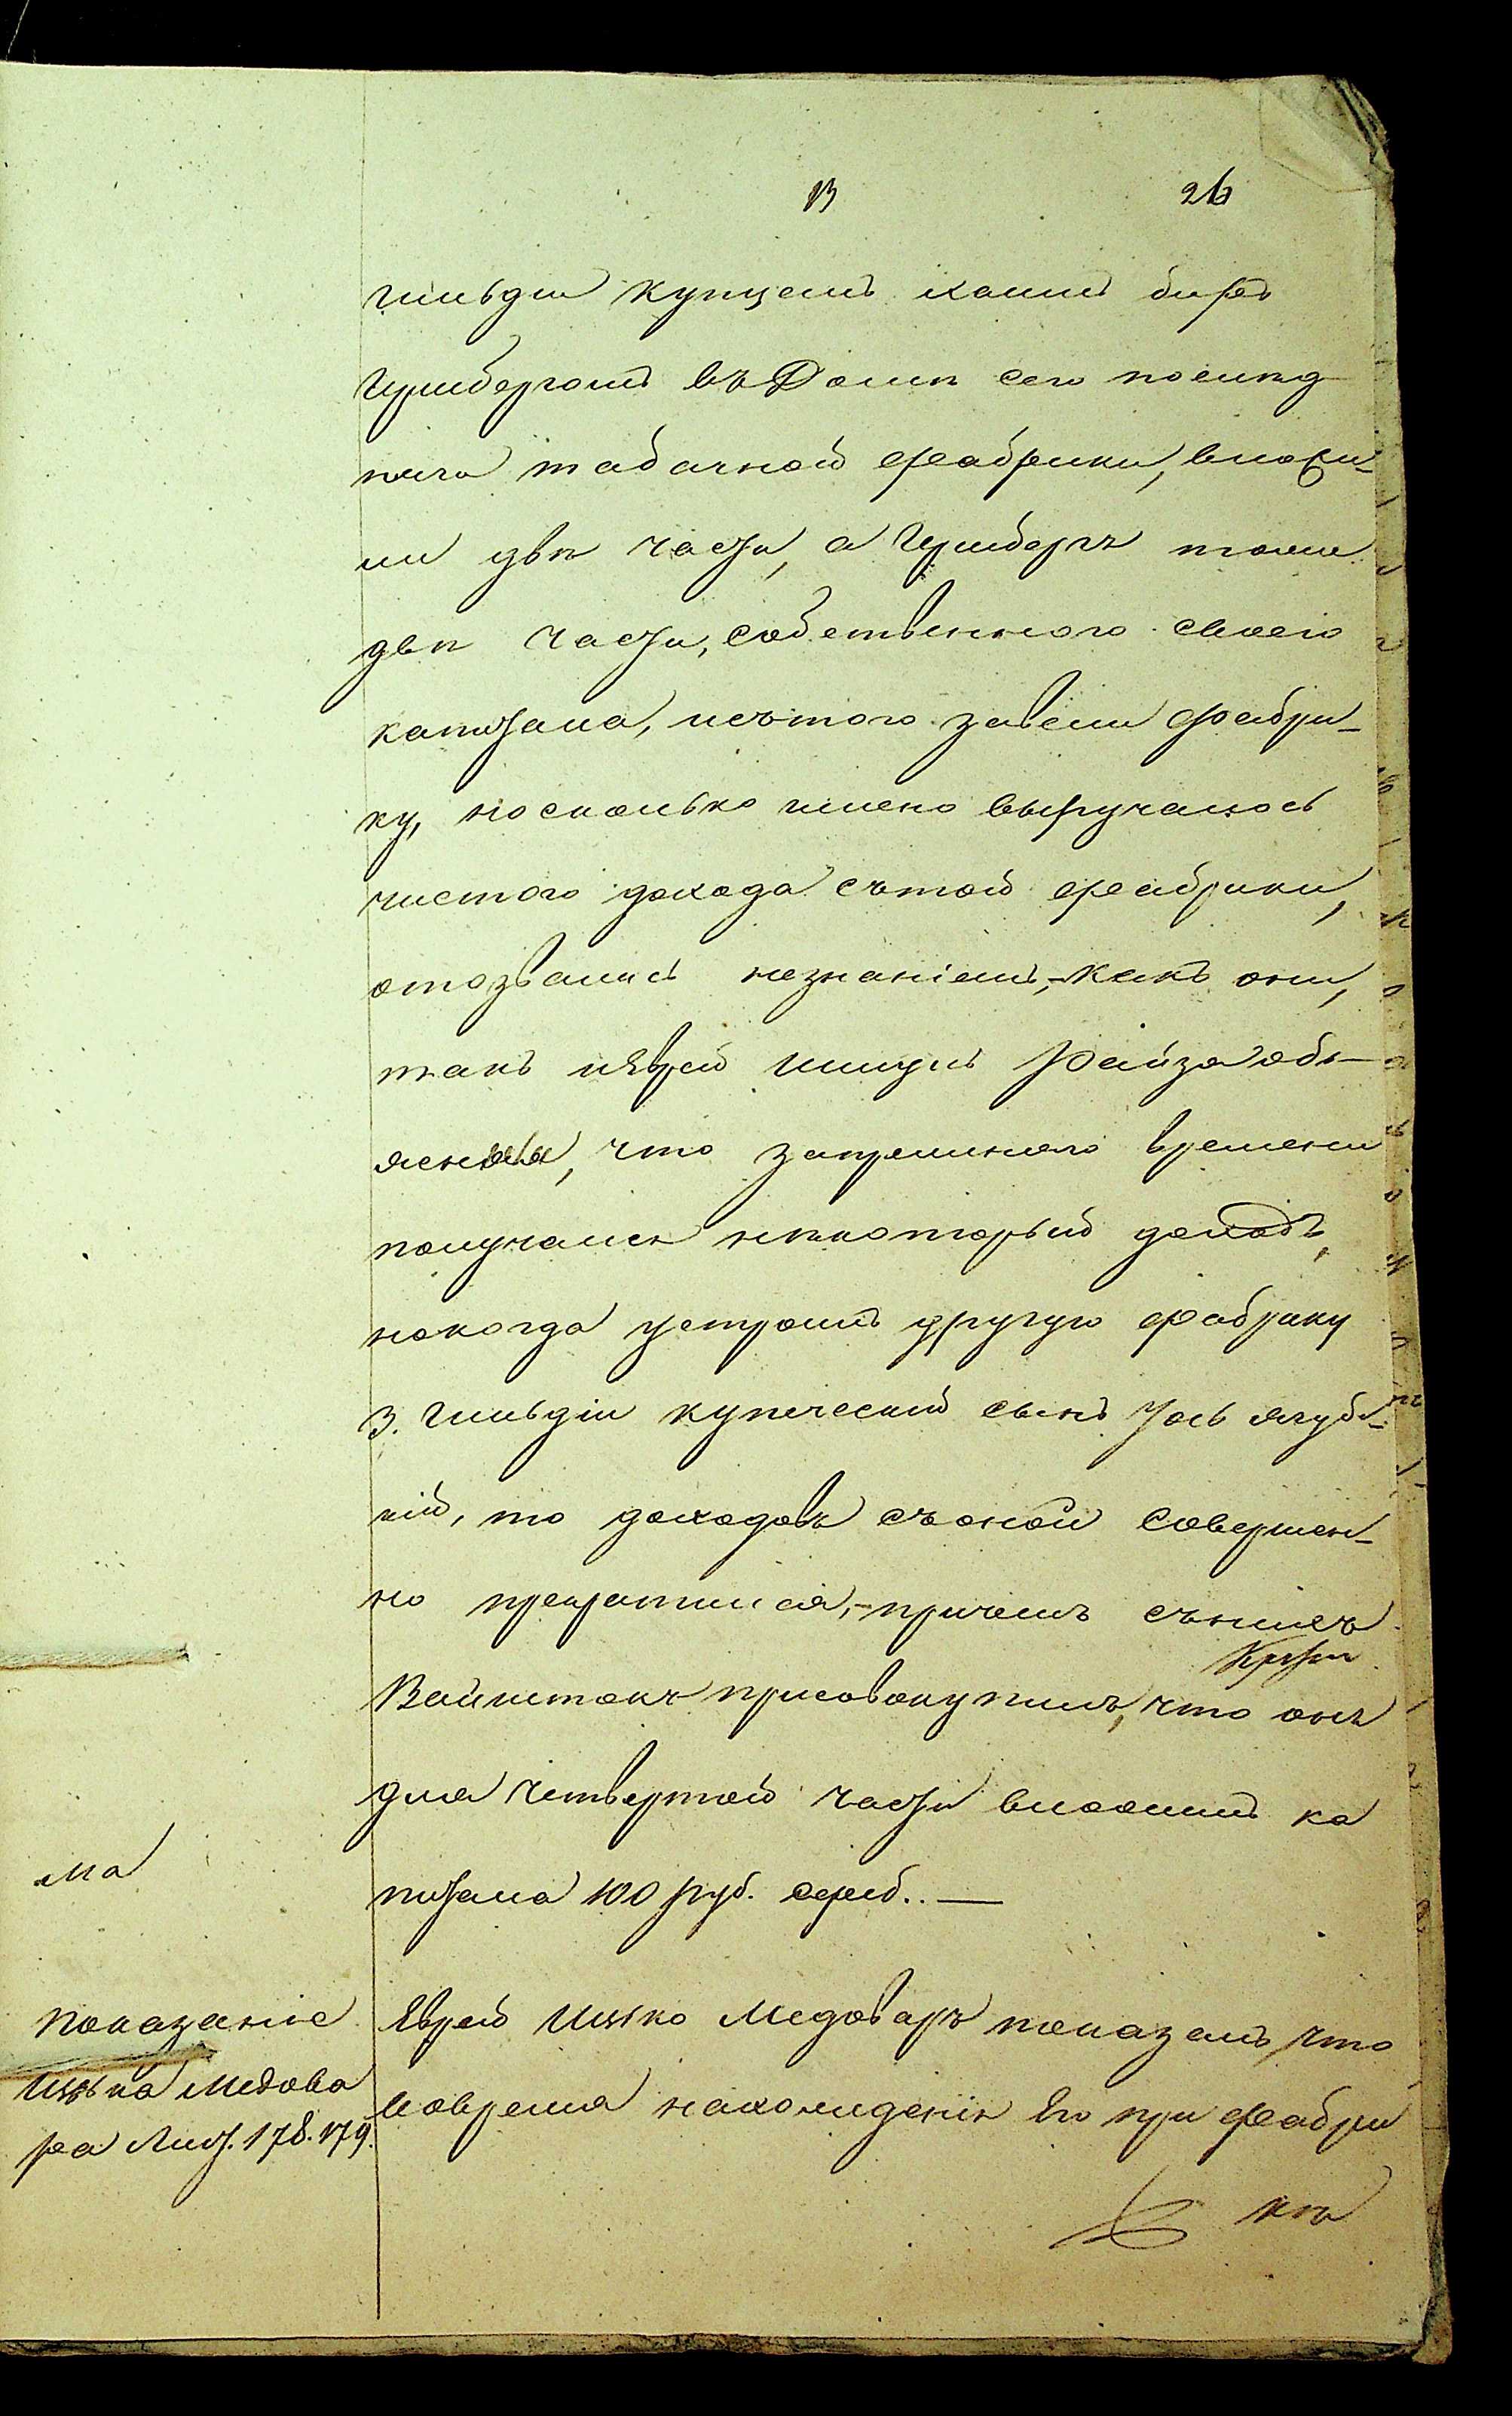 13 26
гильдіи купцемъ
Гринбергомъ въ Домѣ сего послѣд
няго табачной фабрики, вложи-
ли двѣ части, а Гринбергъ тоже
двѣ части, собственного своего
капитала, исътого завели фабри-
ку, но сколько имено выручалось
чистого дохода сътой фабрики,
отозвались незнаніемъ, - какъ они,
такъ иЕврей Файза объ-
яснили, что запрежнего времени
получался нѣкоторый доходъ,
нокогда устроилъ другую фабрику
3. Гильдіи купеческій сынъ Іось Ягуб-
кій, то доходъ съоной совершен-
но прекратился, - причемъ сънихъ
Вайнштокъ присовокупилъ, что онъ
для четвертой части вложилъ ка
питала 100 руб. сереб. —
ла
Показаніе
Ицька Медова
ра Лист. 178. 179.
Еврей Ицко Медоваръ показалъ что
вовремя нахожденія Его при фабри
кѣ